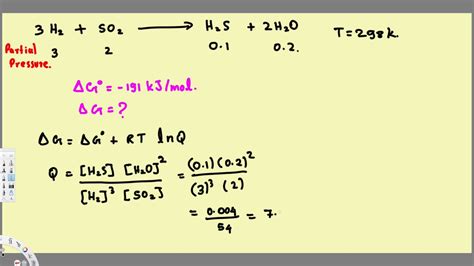 3 H₂ + SO₂ ⟶ H₂S + 2H₂O T = 298 k.
Partial Pressure. 3 2 0.1 0.2.
ΔG° = -191 kJ/mol.
ΔG = ?
ΔG = ΔG° + RT lnQ
Q = [H₂S] [H₂O]² / [H₂]³ [SO₂] = (0.1)(0.2)² / (3)³ (2)
= 0.004 / 54 = 7.